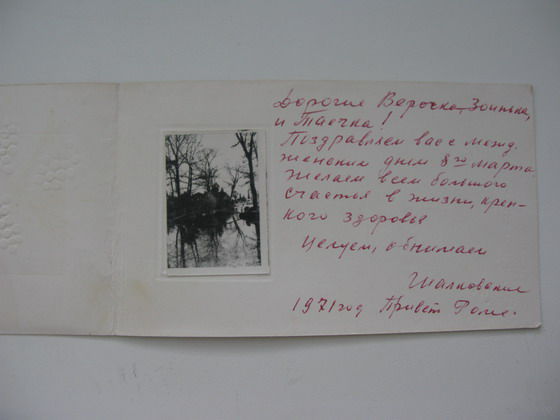 Дорогие Верочка, Зоинька,
и Таечка!
Поздравляем вас с межд.
женским днем 8го марта
Желаем всем большого
счастья в жизни, креп-
кого здоровья
Целуем, обнимаем
1971 год Привет Роме.